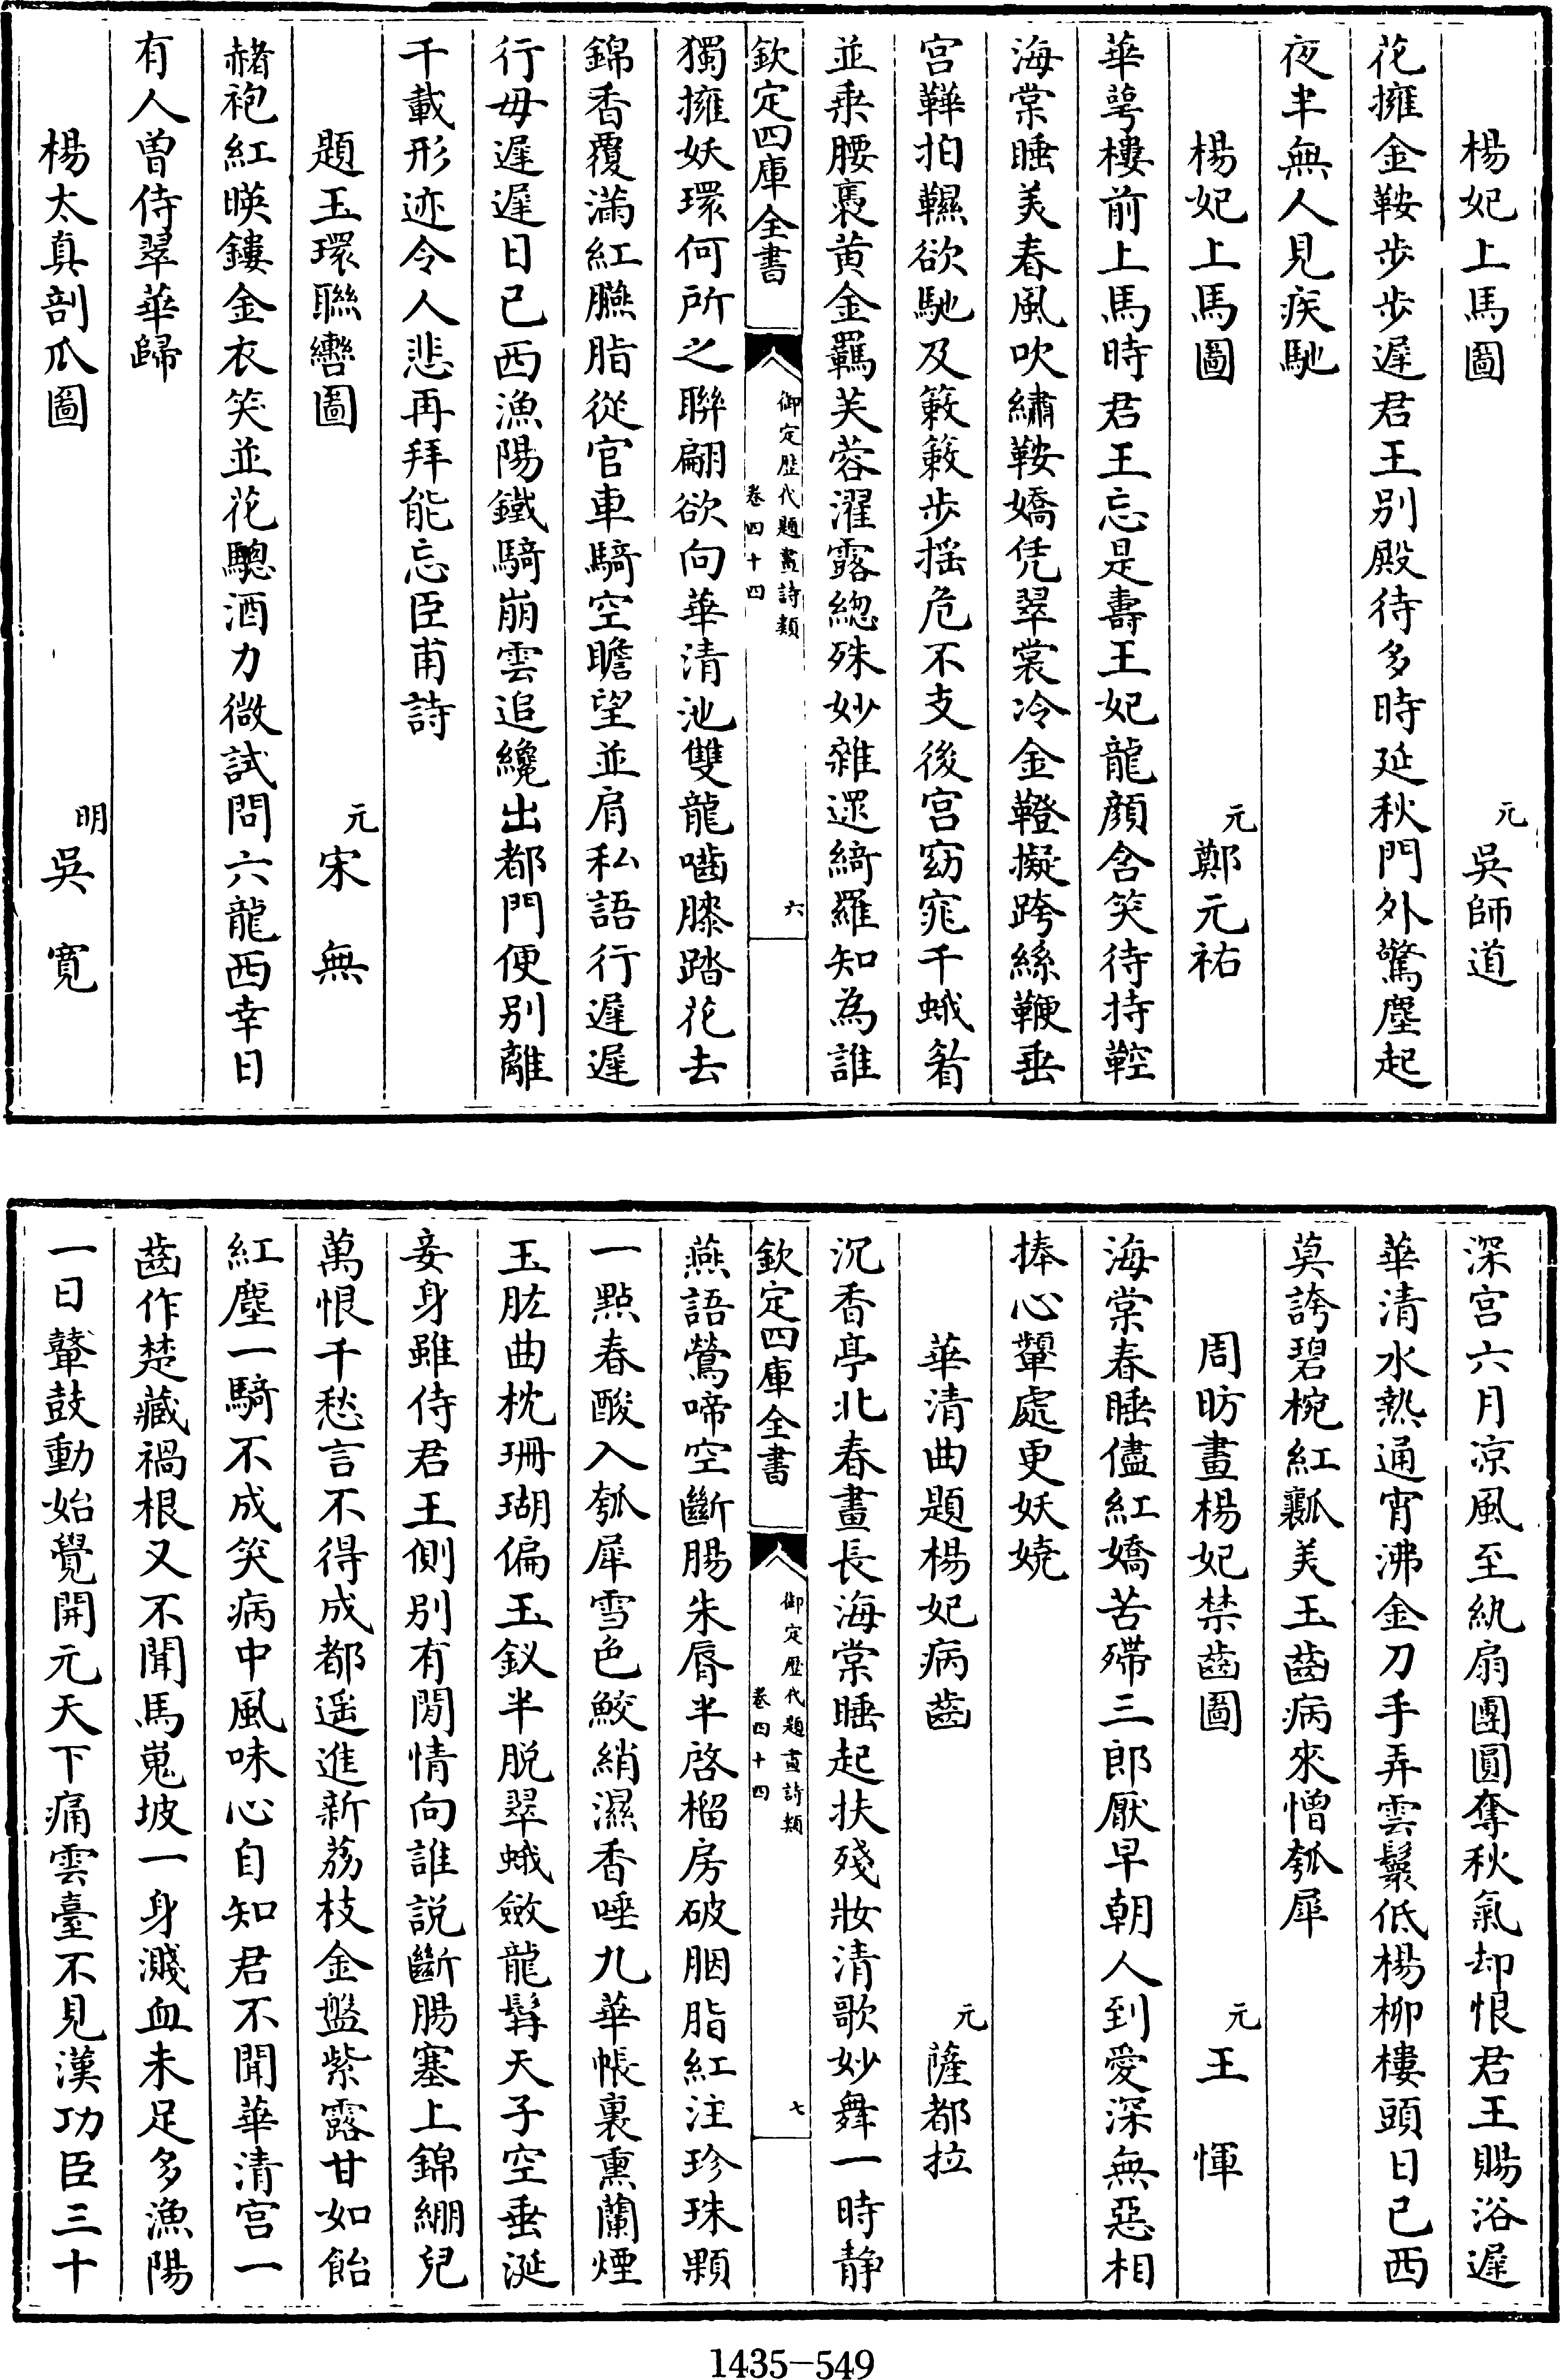 楊妃上馬圖 元 吳師道
花擁金鞍步步遲君王別殿待多時延秋門外驚塵起
夜半無人見疾馳
楊妃上馬圖 元 鄭元祐
華萼樓前上馬時君王忘是壽王妃龍顏含笑待持鞚
海棠睡美春風吹繡鞍嬌凭翠裳冷金鞾擬跨絲鞭垂
宮鞾拍鞿欲馳及簌簌步揺危不支後宮窈窕千蛾眉
並乗腰褭黄金羈芙蓉濯露緫殊妙雜遝綺羅知為誰
欽定四庫全書 御定歴代題畫詩類 卷四十四 六
獨擁妖環何所之聯翩欲向華清池雙龍嚙膝踏花去
錦香覆滿紅臙脂從官車騎空瞻望並肩私語行遲遲
行毋遲遲日已西漁陽鐵騎崩雲追纔出都門便別離
千載形迹令人悲再拜能忘臣甫詩
題玉環聯轡圖 元 宋無
赭袍紅暎鏤金衣笑並花驄酒力微試問六龍西幸日
有人曽侍翠華歸
楊太真剖瓜圖 明 吳寛
深宮六月凉風至紈扇團圓奪秋氣却恨君王賜浴遲
華清水熱通宵沸金刀手弄雲鬟低楊柳樓頭日已西
莫誇碧椀紅瓤美玉齒病來憎瓠犀
周昉畫楊妃禁齒圖 元 王惲
海棠春睡儘紅嬌苦殢三郎厭早朝人到愛深無惡相
捧心顰處更妖嬈
華清曲題楊妃病齒 元 薩都拉
沉香亭北春晝長海棠睡起扶殘妝清歌妙舞一時静
欽定四庫全書 御定歴代題畫詩類 卷四十四 七
燕語鶯啼空斷腸朱脣半啓榴房破胭脂紅注珍珠顆
一點春酸入瓠犀雪色鮫綃濕香唾九華帳裏熏蘭煙
玉肱曲枕珊瑚偏玉釵半脱翠蛾斂龍髯天子空垂涎
妾身雖侍君王側别有閒情向誰説斷腸塞上錦繃兒
萬恨千愁言不得成都遥進新荔枝金盤紫露甘如飴
紅塵一騎不成笑病中風味心自知君不聞華清宮一
齒作楚藏禍根又不聞馬嵬坡一身濺血未足多漁陽
一日鼙鼓動始覺開元天下痛雲臺不見漢功臣三十
1435-549